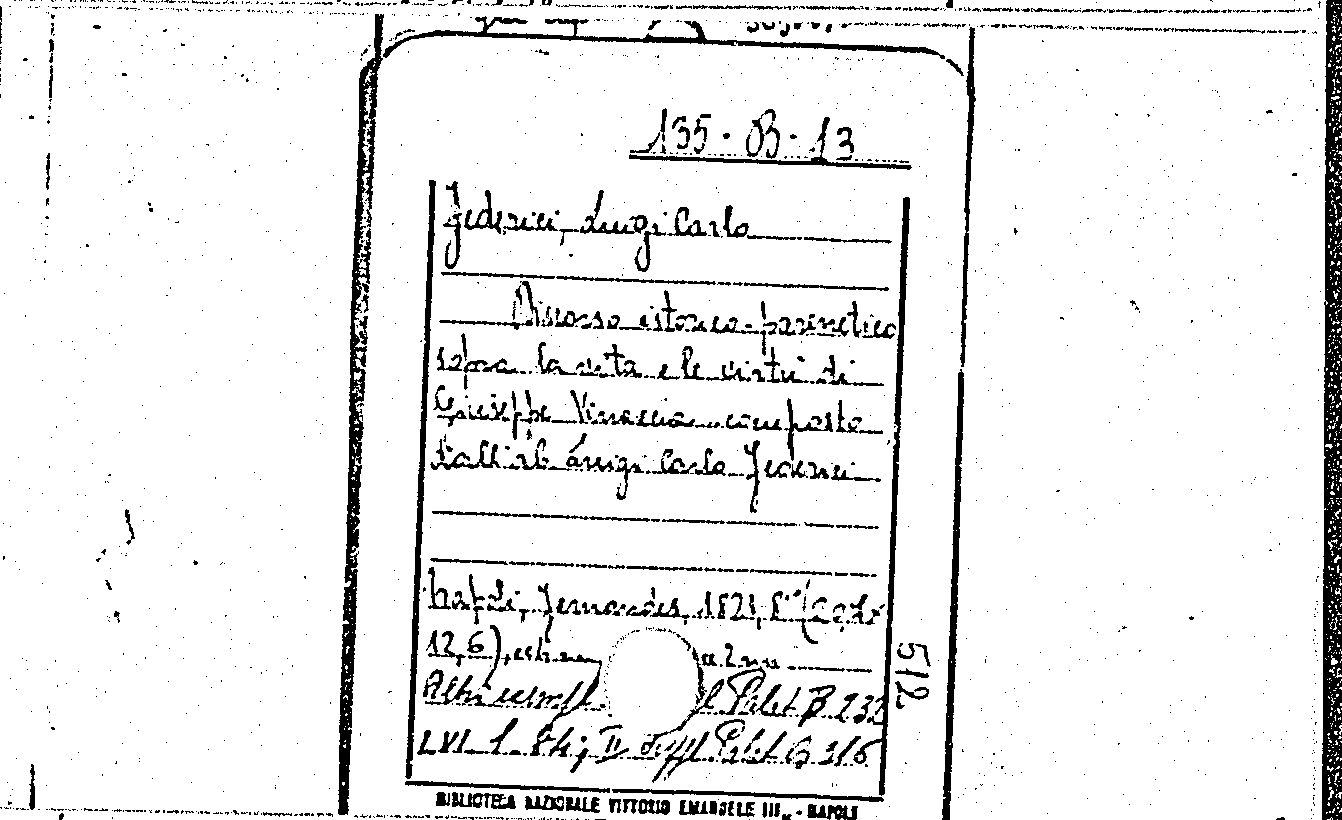 135-B-13
Federici, Luigi Carlo
Discorso istorico-parenetico
sopra la vita e le virtù di
Giuseppe Vinaccia composto
dall'ab. Luigi Carlo Federici
Napoli, Fernandes, 1821, 8°
12,6),
Altri esempl. Palat. B 232
LVI II Suppl. Palat. B 316
512
BIBLIOTECA NAZIONALE VITTORIO EMANUELE III. - NAPOLI